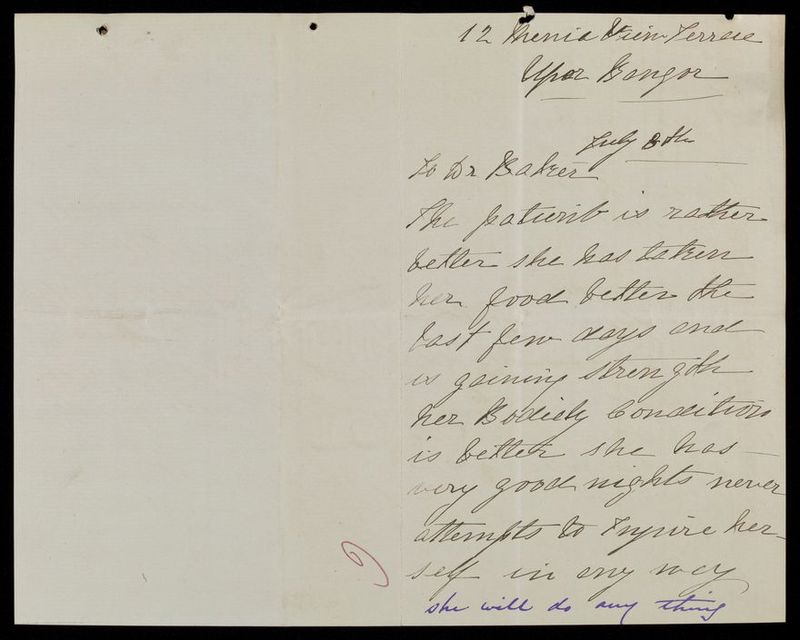 12 Menia View Terrace
Uper Bangor
July 8th
To Dr Baker
The patient is rather
better she has taken
her food better the
last few days and
is gaining strength
her Bodiely Condition
is better she has
very good nights never
attempts to Injure her-
self in any way
she will do any thing